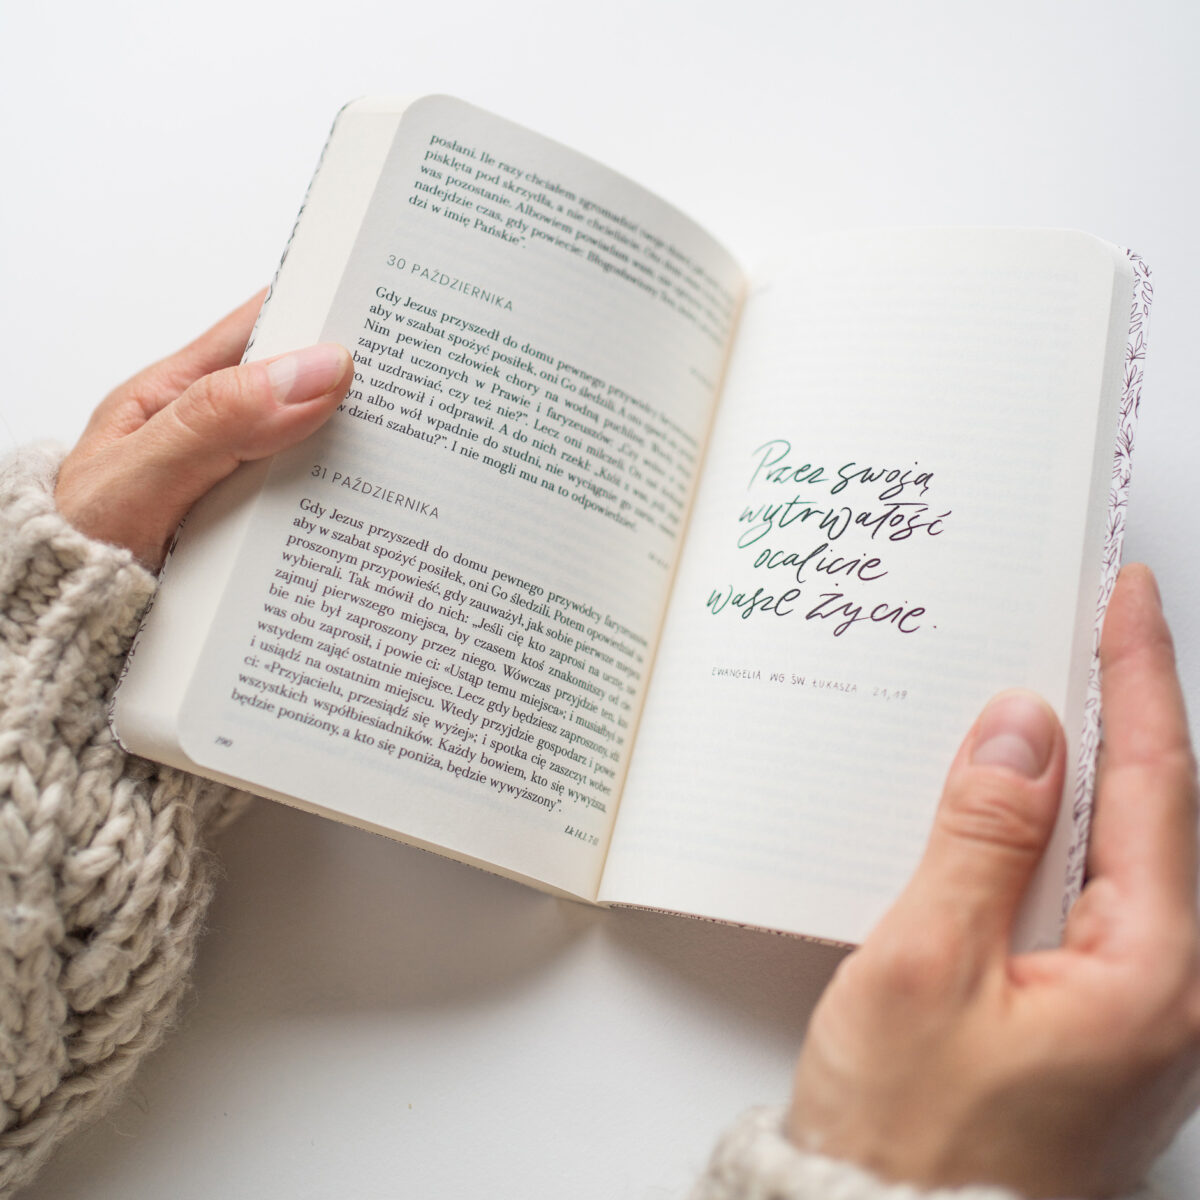 posłani. Ile razy chciałem zgromadzić twoje dzieci,
pisklęta pod skrzydła, a nie chcieliście. Oto dom
was pozostanie. Albowiem powiadam wam, nie
nadejdzie czas, gdy powiecie: Błogosławiony Ten,
dzi w imię Pańskie”.
30 PAŹDZIERNIKA
Gdy Jezus przyszedł do domu pewnego przywódcy
aby w szabat spożyć posiłek, oni Go śledzili. A oto
Nim pewien człowiek chory na wodną puchlinę.
zapytał uczonych w Prawie i faryzeuszów: „Czy
bat uzdrawiać, czy też nie?”. Lecz oni milczeli. On
uzdrowił i odprawił. A do nich rzekł: „Któż z was,
albo wół wpadnie do studni, nie wyciągnie go zaraz,
w dzień szabatu?”. I nie mogli mu na to odpowiedzieć.
31 PAŹDZIERNIKA
Gdy Jezus przyszedł do domu pewnego przywódcy faryzeuszów,
aby w szabat spożyć posiłek, oni Go śledzili. Potem opowiedział
proszonym przypowieść, gdy zauważył, jak sobie pierwsze miejsca
wybierali. Tak mówił do nich: „Jeśli cię kto zaprosi na ucztę, nie
zajmuj pierwszego miejsca, by czasem ktoś znakomitszy od
bie nie był zaproszony przez niego. Wówczas przyjdzie ten, kto
was obu zaprosił, i powie ci: «Ustąp temu miejsca»; i musiałbyś ze
wstydem zająć ostatnie miejsce. Lecz gdy będziesz zaproszony, idź
i usiądź na ostatnim miejscu. Wtedy przyjdzie gospodarz i powie
ci: «Przyjacielu, przesiądź się wyżej»; i spotka cię zaszczyt wobec
wszystkich współbiesiadników. Każdy bowiem, kto się wywyższa,
będzie poniżony, a kto się poniża, będzie wywyższony”.
Łk 14,1. 7-11
290
Przez swoją
wytrwałość
ocalicie
wasze życie.
EWANGELIA WG ŚW. ŁUKASZA 21,19